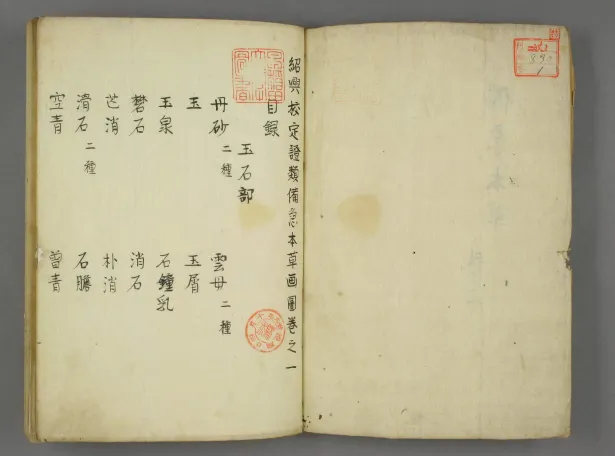 紹興校定證類備急本草画圖卷之一
目録
玉石部
丹砂二種 雲母二種
玉 玉屑
玉泉 石鐘乳
礬石 消石
芒消 朴消
滑石二種 石膽
空青 曽青